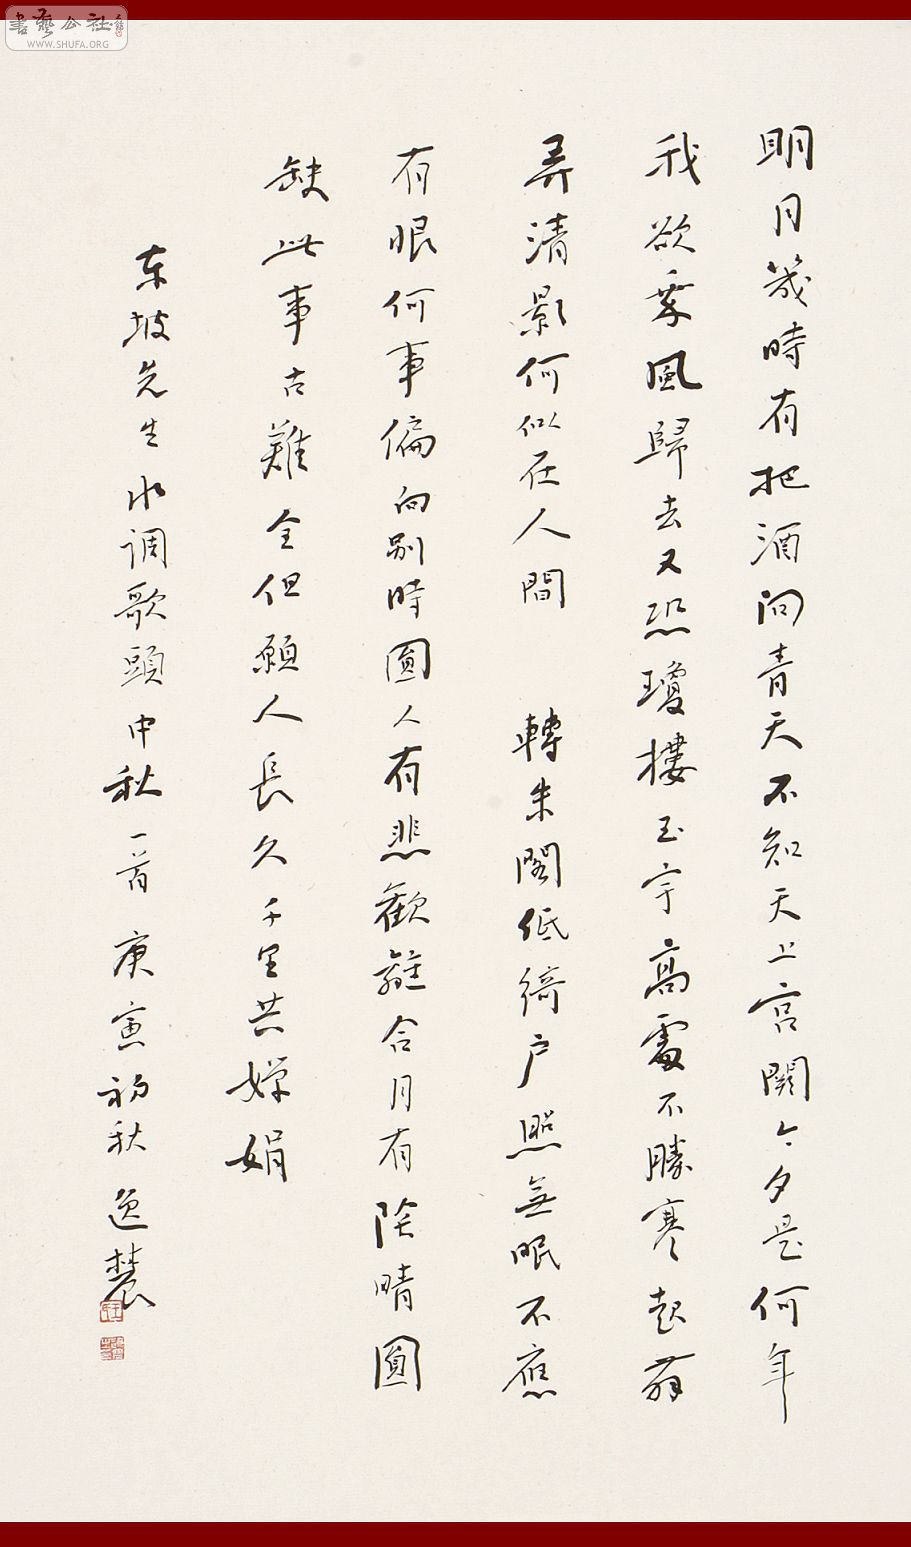 書藝公社
WWW.SHUFA.ORG
明月幾時有把酒問青天不知天上宮闕今夕是何年
我欲乘風歸去又恐瓊樓玉宇高處不勝寒起舞
弄清影何似在人間 轉朱閣低綺户照無眠不應
有恨何事偏向别時圓人有悲歡離合月有陰晴圓
缺此事古難全但願人長久千里共嬋娟
东坡先生水调歌頭中秋一首 庚寅初秋 逸